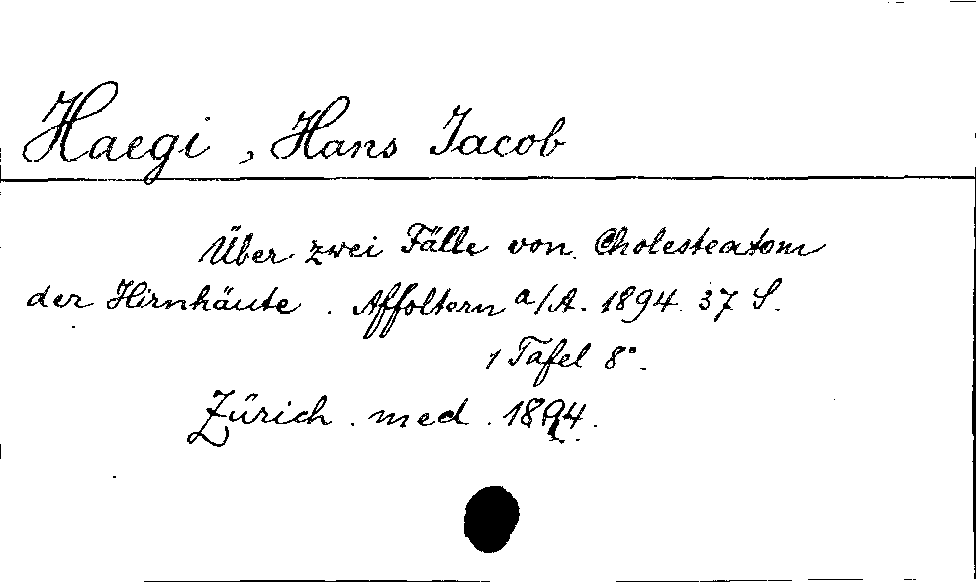 Haegi, Hans Jacob
Über zwei Fälle von Cholesteatom
der Hirnhäute. Affoltern a/A. 1894. 37 S.
1 Tafel 8°.
Zürich. med. 1894.